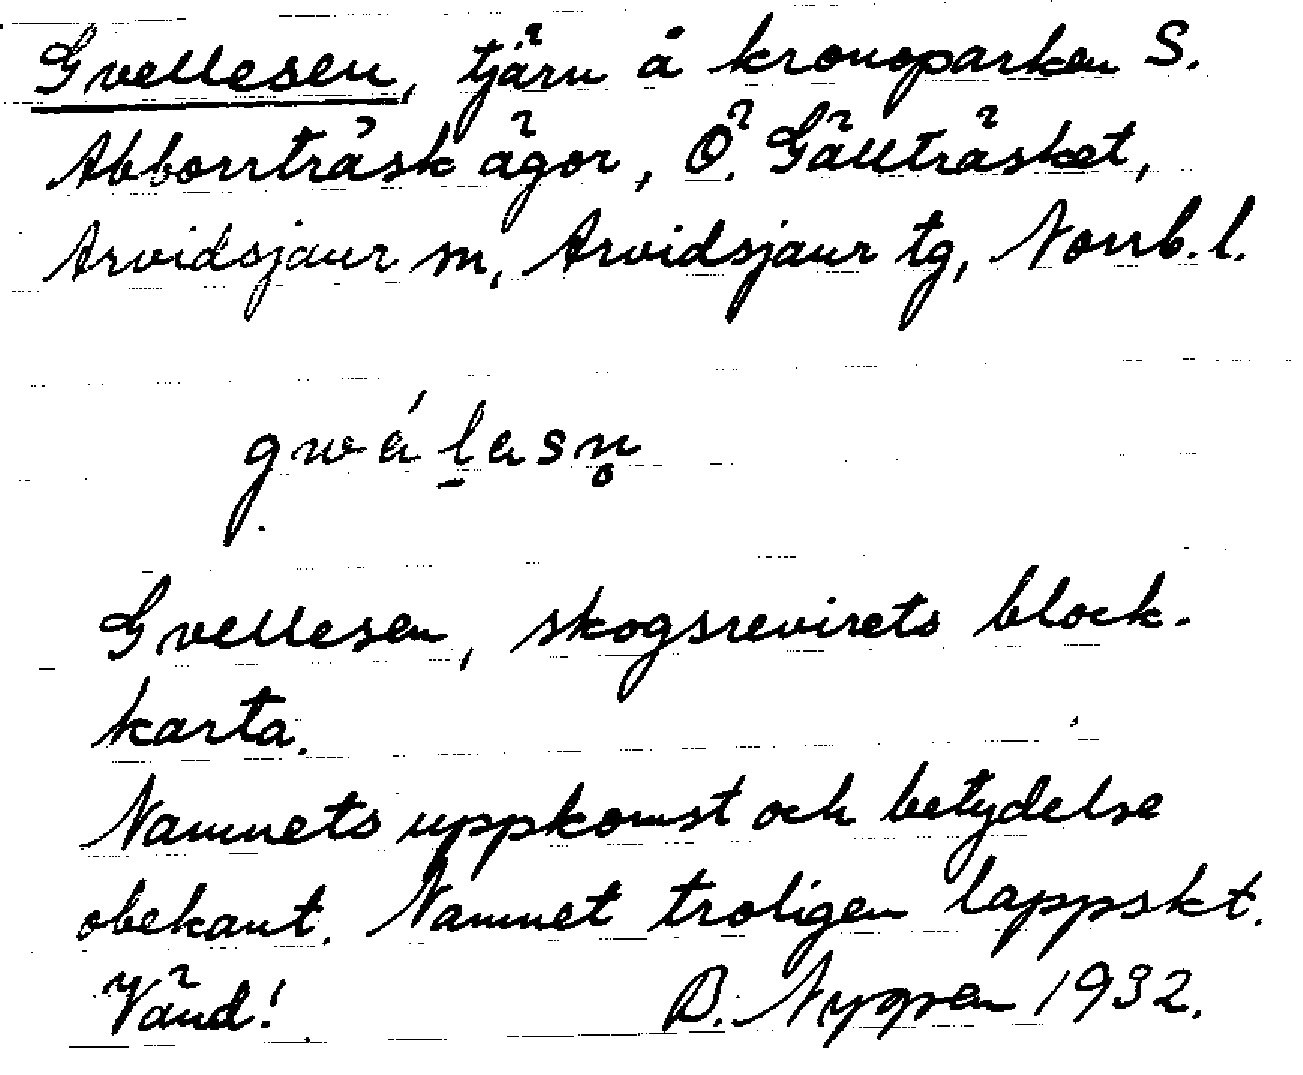 Gvellesen, tjärn å kronoparken S.
Abborrträsk ägor, Ö. Gällträsket,
Arvidsjaur sn, Arvidsjaur tg, Norrb. l.
gwélesn̥
Gvellesen, skogsrevirets block-
karta.
Namnets uppkomst och betydelse
obekant. Namnet troligen lappskt.
Vänd! B. Nygren 1932.